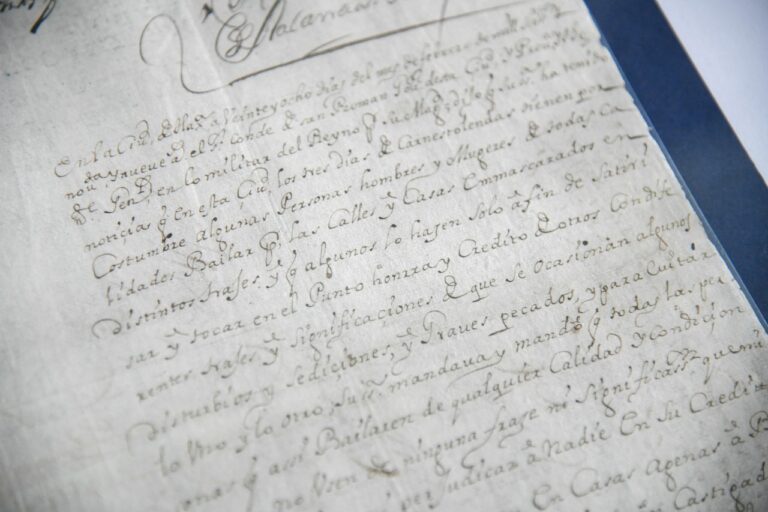 En la Ciu.d de a Veinte y ocho dias del mes de febrero de mill
nou.ta y nueue a.s el S.r Conde de san Roman
en lo militar del Reyno Su Mag.d dijo q Su S.a ha tenido
noticia q En esta Ciu.d los tres dias de Carnestolendas tienen por
Costumbre algunas Personas hombres y Mugeres de todas Ca
lidades Bailar p.r las Calles y Casas Enmascarados en
distintos trajes y q algunos lo hasen solo a fin de Satiri
sar y tocar en el Punto honrra y Credito de otros Con dife
rentes trajes y Significaciones de que se Ocasionan algunos
Disturbios y Sediciones, y Graves pecados, y para Evitar
lo Uno y lo otro, Su S.a mandava y mandó q todas las per
onas q assi Bailaren de qualquier Calidad y Condicion
no Usen de ninguna frase ni Significass.on que mi
perjudicar a Nadie En Su Credito
En Casas Agenas
Castigad